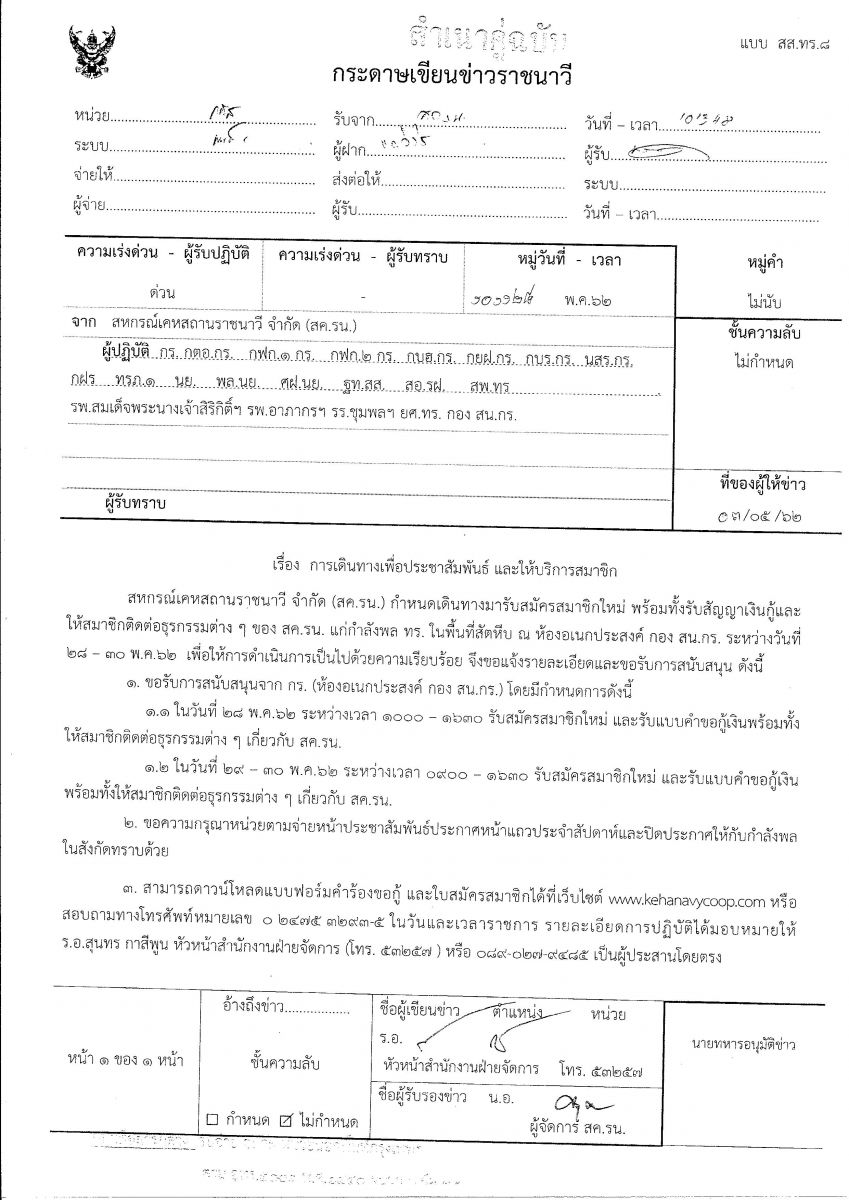 สำเนาคู่ฉบับ
แบบ สส.ทร.๘
กระดาษเขียนข่าวราชนาวี
หน่วย
รับจาก
วันที่ – เวลา
ระบบ
ผู้ฝาก
ผู้รับ
จ่ายให้
ส่งต่อให้
ระบบ
ผู้จ่าย
ผู้รับ
วันที่ – เวลา
ความเร่งด่วน - ผู้รับปฏิบัติ
ความเร่งด่วน - ผู้รับทราบ
หมู่วันที่ - เวลา
หมู่คำ
ด่วน
-
พ.ค.๖๒
ไม่นับ
จาก สหกรณ์เคหสถานราชนาวี จำกัด (สค.รน.)
ชั้นความลับ
ผู้ปฏิบัติ กร. กตอ.กร. กฟก.๑ กร. กฟก.๒ กร. กบฮ.กร. กยฝ.กร. กบร.กร. นสร.กร.
ไม่กำหนด
กฝร ทรภ.๑ นย. พล.นย. ศฝ.นย. ฐท.สส. สอ.รฝ. สพ.ทร
รพ.สมเด็จพระนางเจ้าสิริกิติ์ฯ รพ.อาภากรฯ รร.ชุมพลฯ ยศ.ทร. กอง สน.กร.
ที่ของผู้ให้ข่าว
ผู้รับทราบ
/๐๕/๖๒
เรื่อง การเดินทางเพื่อประชาสัมพันธ์ และให้บริการสมาชิก
สหกรณ์เคหสถานราชนาวี จำกัด (สค.รน.) กำหนดเดินทางมารับสมัครสมาชิกใหม่ พร้อมทั้งรับสัญญาเงินกู้และ
ให้สมาชิกติดต่อธุรกรรมต่าง ๆ ของ สค.รน. แก่กำลังพล ทร. ในพื้นที่สัตหีบ ณ ห้องอเนกประสงค์ กอง สน.กร. ระหว่างวันที่
๒๘ – ๓๐ พ.ค.๖๒ เพื่อให้การดำเนินการเป็นไปด้วยความเรียบร้อย จึงขอแจ้งรายละเอียดและขอรับการสนับสนุน ดังนี้
๑. ขอรับการสนับสนุนจาก กร. (ห้องอเนกประสงค์ กอง สน.กร.) โดยมีกำหนดการดังนี้
๑.๑ ในวันที่ ๒๘ พ.ค.๖๒ ระหว่างเวลา ๑๐๐๐ – ๑๖๓๐ รับสมัครสมาชิกใหม่ และรับแบบคำขอกู้เงินพร้อมทั้ง
ให้สมาชิกติดต่อธุรกรรมต่าง ๆ เกี่ยวกับ สค.รน.
๑.๒ ในวันที่ ๒๙ – ๓๐ พ.ค.๖๒ ระหว่างเวลา ๐๙๐๐ – ๑๖๓๐ รับสมัครสมาชิกใหม่ และรับแบบคำขอกู้เงิน
พร้อมทั้งให้สมาชิกติดต่อธุรกรรมต่าง ๆ เกี่ยวกับ สค.รน.
๒. ขอความกรุณาหน่วยตามจ่ายหน้าประชาสัมพันธ์ประกาศหน้าแถวประจำสัปดาห์และปิดประกาศให้กับกำลังพล
ในสังกัดทราบด้วย
๓. สามารถดาวน์โหลดแบบฟอร์มคำร้องขอกู้ และใบสมัครสมาชิกได้ที่เว็บไซต์ www.kehanavycoop.com หรือ
สอบถามทางโทรศัพท์หมายเลข ๐ ๒๔๗๕ ๓๒๙๓-๕ ในวันและเวลาราชการ รายละเอียดการปฏิบัติได้มอบหมายให้
ร.อ.สุนทร กาสีพูน หัวหน้าสำนักงานฝ่ายจัดการ (โทร. ๕๓๒๕๗ ) หรือ ๐๘๙-๐๒๗-๙๔๘๕ เป็นผู้ประสานโดยตรง
อ้างถึงข่าว
ชื่อผู้เขียนข่าว ตำแหน่ง หน่วย
ร.อ.
หน้า ๑ ของ ๑ หน้า
ชั้นความลับ
หัวหน้าสำนักงานฝ่ายจัดการ โทร. ๕๓๒๕๗
นายทหารอนุมัติข่าว
ชื่อผู้รับรองข่าว น.อ.
กำหนด ไม่กำหนด
ผู้จัดการ สค.รน.